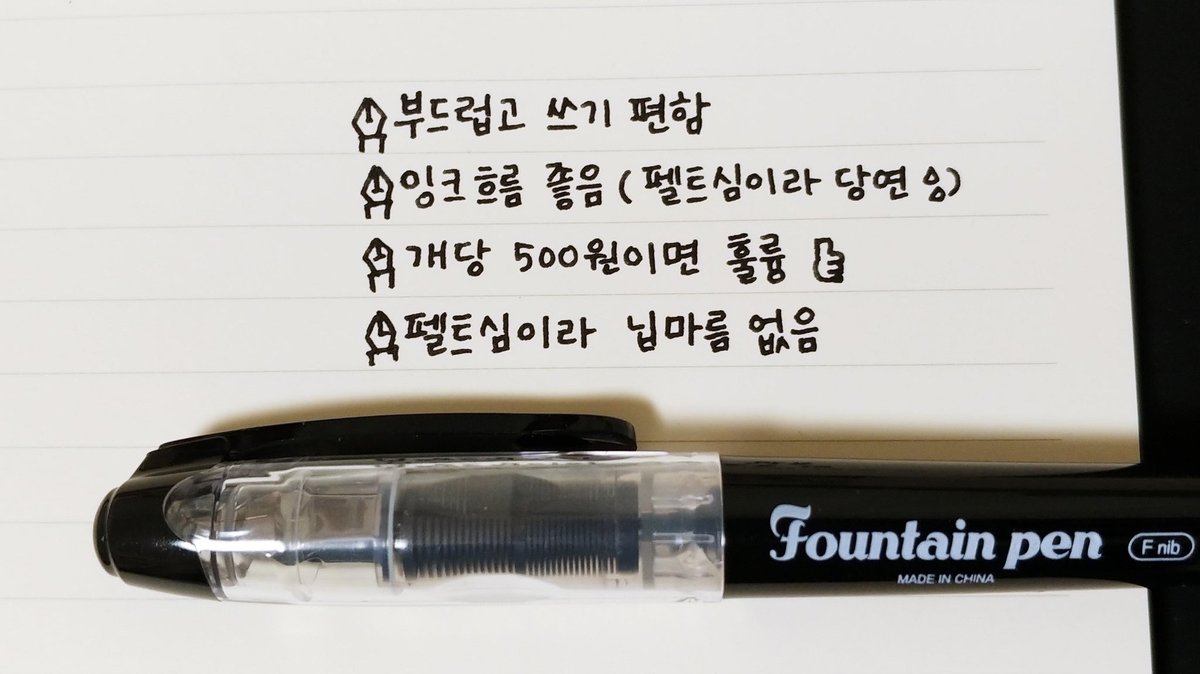 부드럽고 쓰기 편함
잉크흐름 좋음 (펠트심이라 당연㉦)
개당 500원이면 훌륭
펠트심이라 닙마름 없음
Fountain pen F nib
MADE IN CHINA